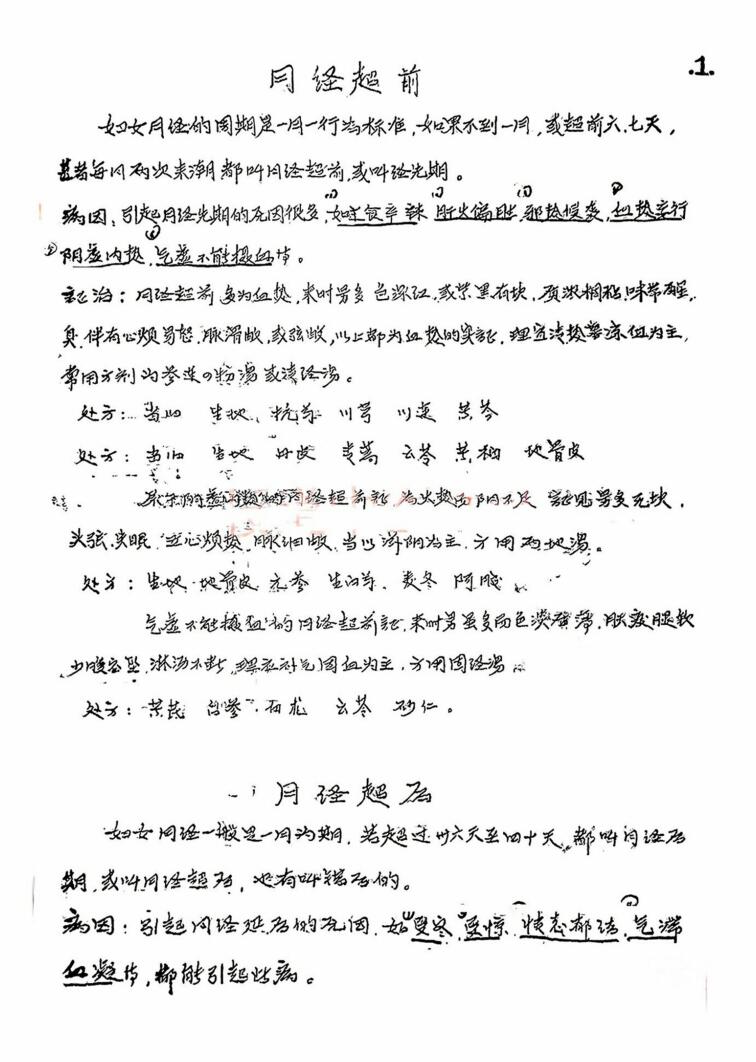 .1.
月经超前
妇女月经的周期是一月一行为标准,如果不到一月,或超前六.七天,
甚者每月两次来潮都叫月经超前,或叫经先期。
病因:引起月经先期的原因很多,如过食辛辣 肝火偏胜,邪热侵袭,血热妄行
阴虚内热,气虚不能摄血等。
证治:月经超前多为血热,来时量多色深红,或紫黑有块,质浓稠粘,味带腥
臭,伴有心烦易怒,脉滑数,或弦数,以上都为血热的实证,理宜清热凉血为主,
常用方剂为芩连四物汤或清经汤。
处方: 当归 生地 杭芍 川芎 川连 黄芩
处方: 当归 生地 丹皮 青蒿 云苓 黄柏 地骨皮
月经超前证 为火热而阴不足 证见量多无块,
头弦,失眠 心烦热,脉细数,当以滋阴为主,方用两地汤。
处方: 生地 地骨皮 元参 生白芍 麦冬 阿胶
气虚不能摄血的月经超前证,来时量虽多而色淡质薄,肢疲腿软
少腹空坠,淋沥不断,理宜补气固血为主,方用固经汤
处方: 黄芪 台参 云苓 砂仁。
月经超后
妇女月经一般是一月为期,若超过卅六天至四十天,都叫月经后
期,或叫月经超后,也有叫错后的。
病因:引起月经延后的原因,如受寒,受惊,情志郁结,气滞
血凝等,都能引起此病。